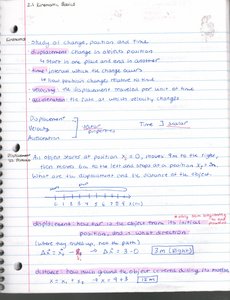 2.1 Kinematic Basics
Kinematics
Study of change, position and time
displacement: change in objects position
↳ starts in one place and ends in another
time: interval which the change occurs
↳ how position changes relative to time
velocity: the displacement traveled per unit of time
acceleration: the rate at which velocity changes
Displacement
Velocity
Acceleration
Vector
Time } scalar
Displacement
vs. Distance
An object starts at position x₁ = 0, moves 9m to the right,
then moves 6m to the left and stops at a position x₂ = 3m.
What are the displacement and the distance of the object.
0 1 2 3 4 5 6 7 8 9
displacement: how far is the object from its initial
position, and in what direction?
(where they ended up, not the path)
3m (Right)
distance: how much ground the object covered during its motion
15m